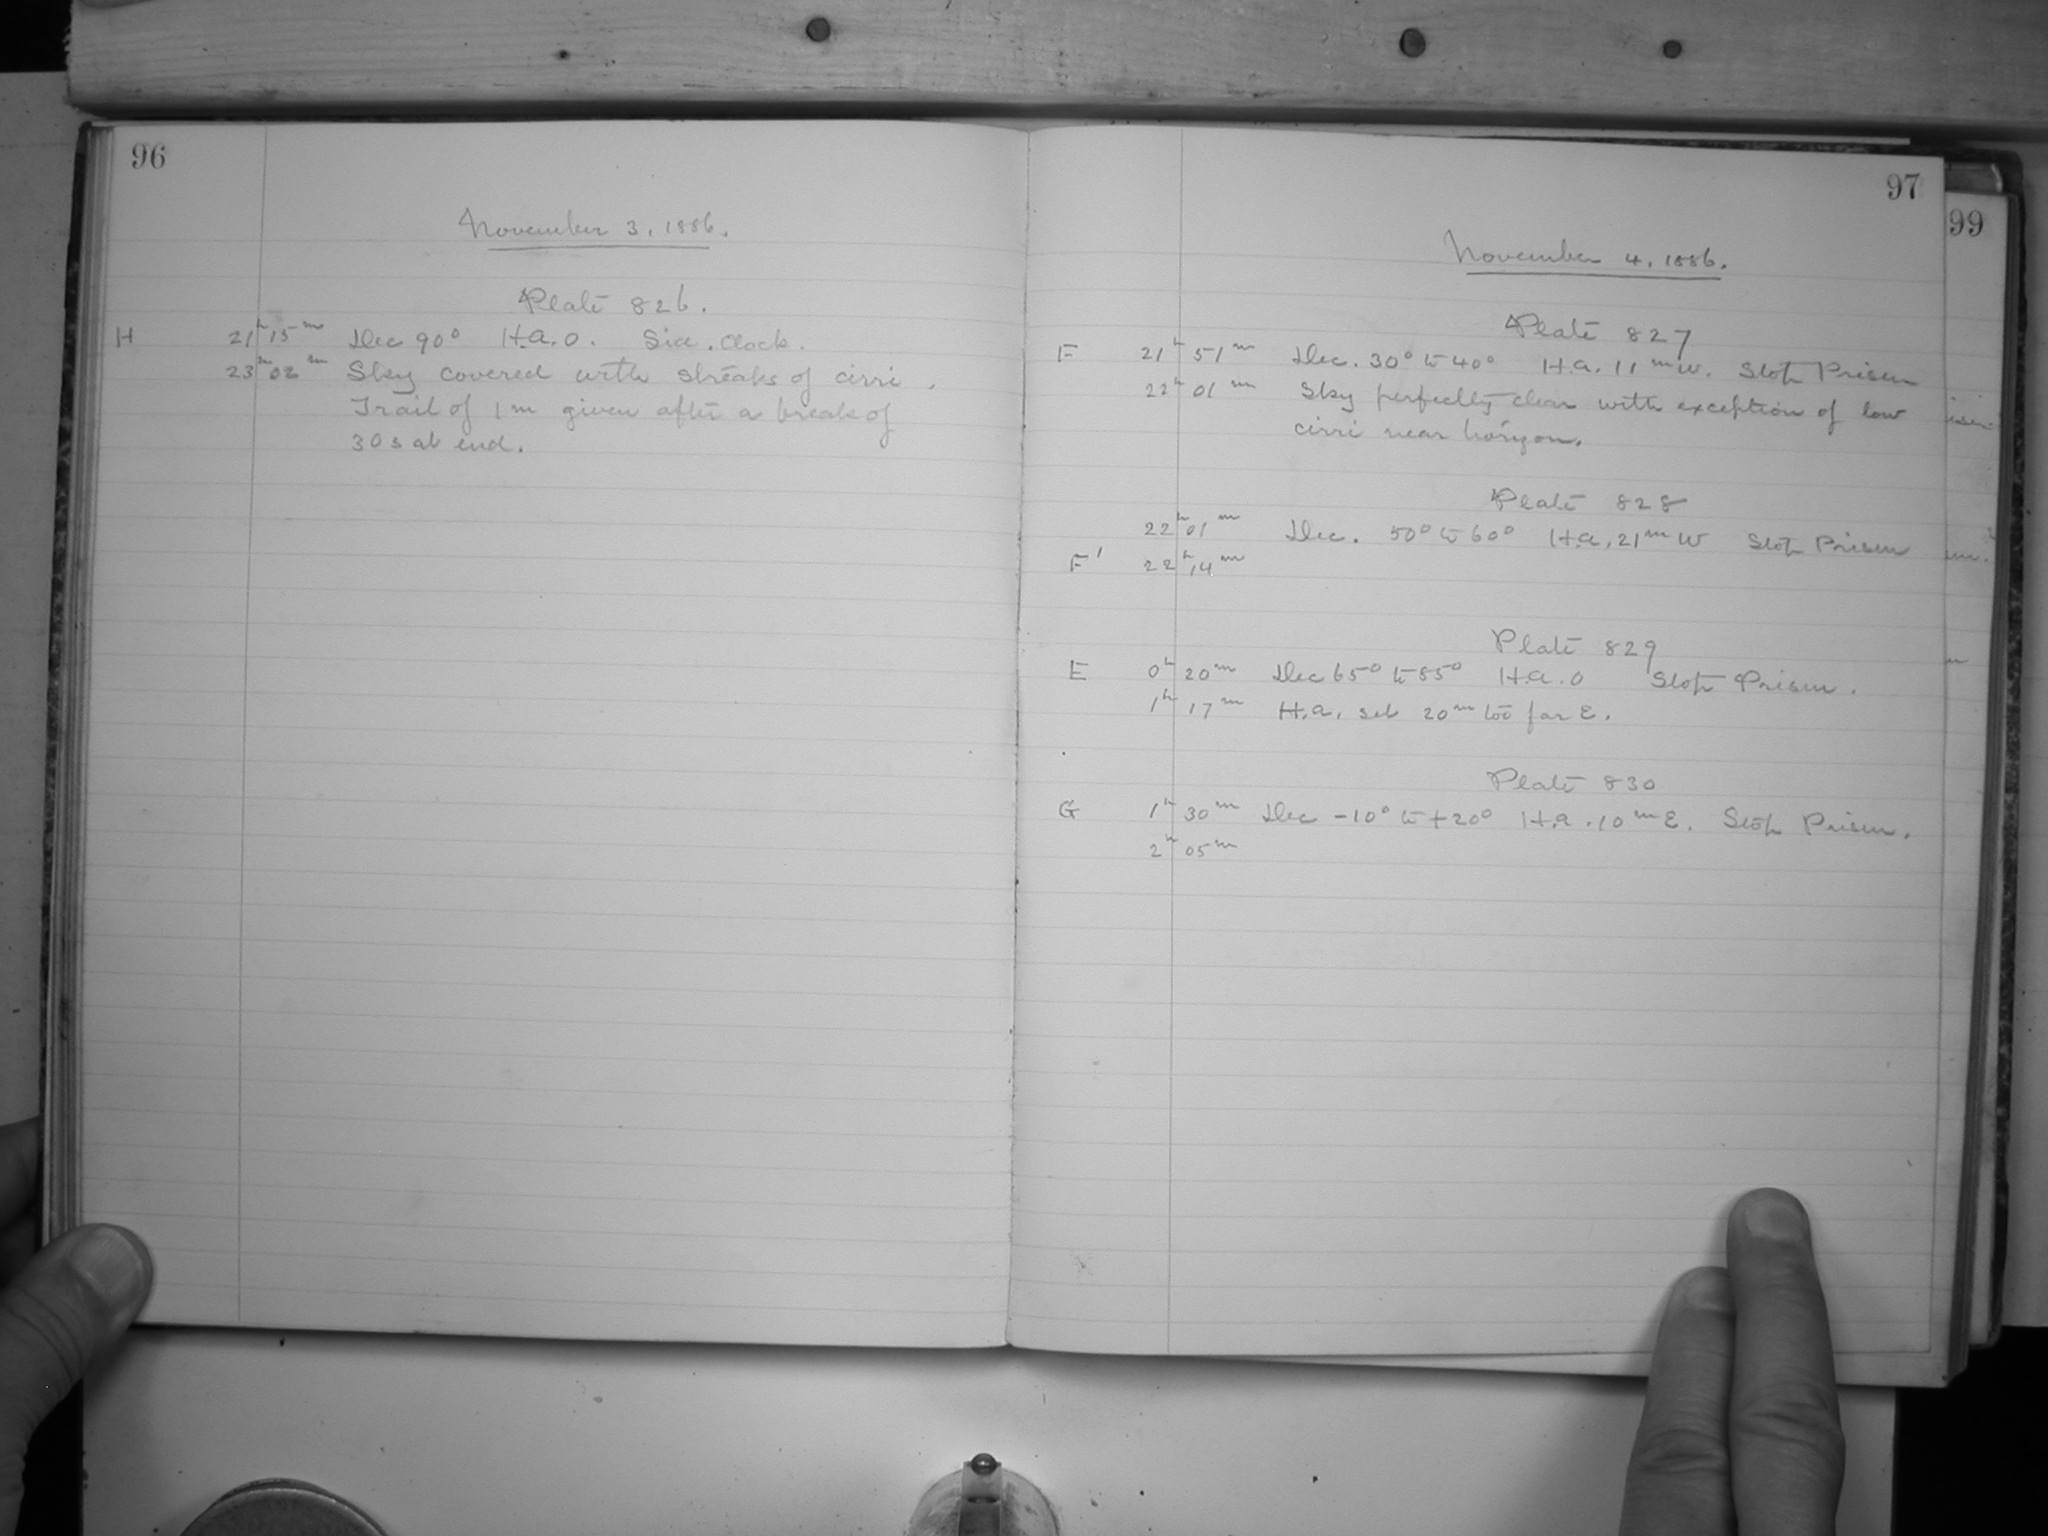 96
November 3, 1886.
Plate 826.
H 21h 15m Dec 90° H.a. 0. Sid. Clock.
23m 02m Sky covered with streaks of cirri.
Trail of 1m given after a break of
30s at end.
97
November 4, 1886.
Plate 827
F 21h 51m Dec. 30° to 40° H.a. 11m W. Slop Prism
22h 01m Sky perfectly clear with exception of low
cirri near horizon.
Plate 828
22h 01m Dec. 50° to 60° H.a. 21m W Slop Prism
F' 22h 14m
Plate 829
E 0h 20m Dec 65° to 85° H.a. 0 Slop Prism.
1h 17m H.a. set 20m too far E.
Plate 830
G 1h 30m Dec -10° to +20° H.a. 10m E. Slop Prism.
2h 05m
99